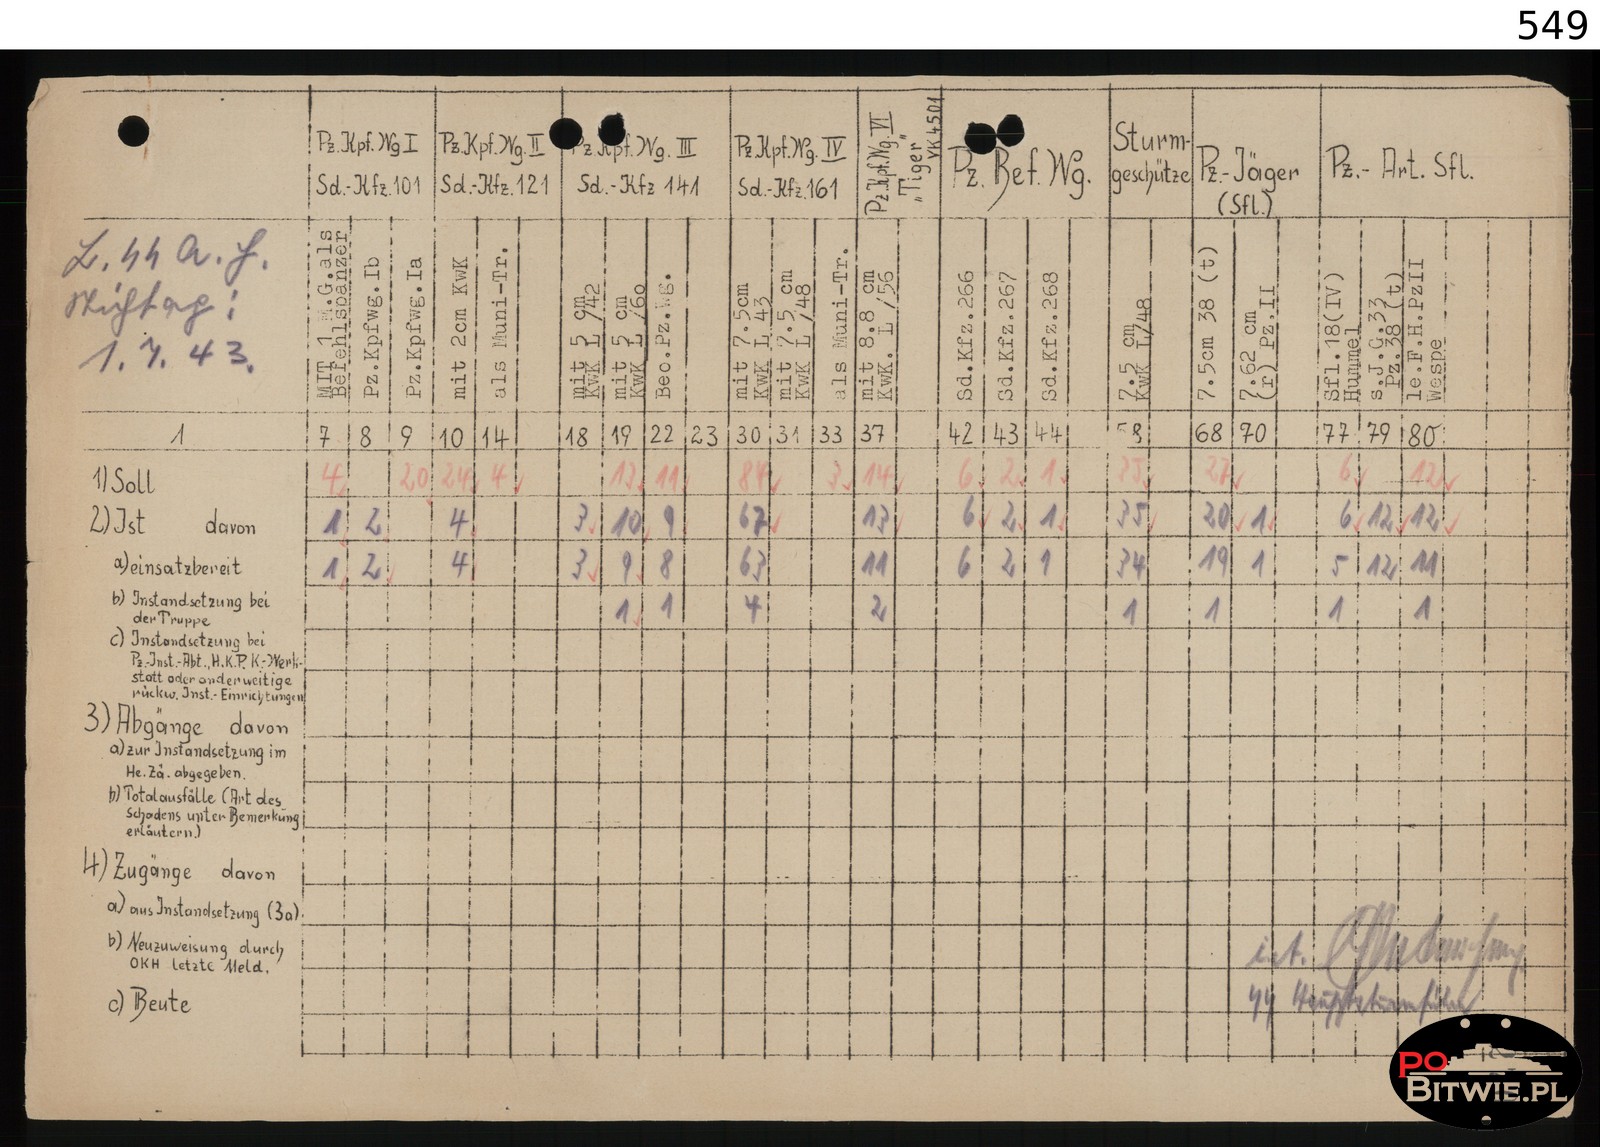 549
Pz.Kpf.Wg I
Sd.-Kfz.101
Pz.Kpf.Wg. II
Sd.-Kfz.121
Pz.Kpf.Wg. III
Sd.-Kfz 141
Pz.Kpf.Wg. IV
Sd.-Kfz.161
Pz.Kpf.Wg. VI
„Tiger"
VK 4501
Pz. Bef. Wg.
Sturm-
geschütze
Pz.-Jäger
(Sfl.)
Pz.- Art. Sfl.
L. SS A. H.
Stichtag:
1. 7. 43.
MIT 1 M.G.als
Befehlspanzer
Pz.Kpfwg.Ib
Pz.Kpfwg.Ia
mit 2cm KwK
als Muni-Tr.
mit 5 cm
KwK L /42
mit 5 cm
KwK L /60
Beo.Pz.Wg.
mit 7.5cm
KwK L 43
mit 7.5 cm
KwK L /48
als Muni-Tr.
mit 8.8 cm
KwK. L /56
Sd.Kfz.266
Sd.Kfz.267
Sd.Kfz.268
7.5 cm
KwK L/48
7.5cm 38 (t)
7.62 cm
(r) Pz.II
Sfl.18(IV)
Hummel
s.J.G.33
Pz.38(t)
le.F.H.PzII
Wespe
1 7 8 9 10 14 18 19 22 23 30 31 33 37 42 43 44 58 68 70 77 79 80
1) Soll 4 20 24 4 13 11 84 3 14 6 2 1 35 27 6 12
2) Ist davon 1 2 4 3 10 9 67 13 6 2 1 35 20 1 6 12 12
a) einsatzbereit 1 2 4 3 9 8 63 11 6 2 1 34 19 1 5 12 11
b) Instandsetzung bei
der Truppe 1 1 4 2 1 1 1 1
c) Instandsetzung bei
Pz.-Inst.-Abt., H.K.P. K.-Werk-
statt oder anderweitige
rückw. Inst.-Einrichtungen
3) Abgänge davon
a) zur Instandsetzung im
He. Za. abgegeben.
b) Totalausfälle (Art des
Schadens unter Bemerkung
erläutern.)
4) Zugänge davon
a) aus Instandsetzung (3a).
b) Neuzuweisung durch
OKH letzte Meld.
c) Beute
SS Hauptsturmführer
PO
BITWIE.PL